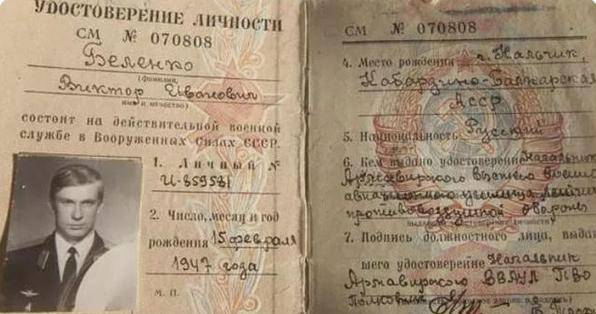 УДОСТОВЕРЕНИЕ ЛИЧНОСТИ
СМ № 070808
Беленко
(фамилия,
Виктор Иванович
имя и отчество)
состоит на действительной военной
службе в Вооруженных Силах СССР.
1. Личный №
И-859581
2. Число, месяц и год
рождения 15 февраля
1947 года
М. П.
СМ № 070808
4. Место рождения г. Нальчик,
Кабардино-Балкарская
АССР
5. Национальность Русский
6. Кем выдано удостоверение Начальник
Армавирского высшего военно
авиационного училища
противовоздушной обороны
7. Подпись должностного лица, выдав
шего удостоверение Начальник
Армавирского ВВАУЛ ПВО
Полковник